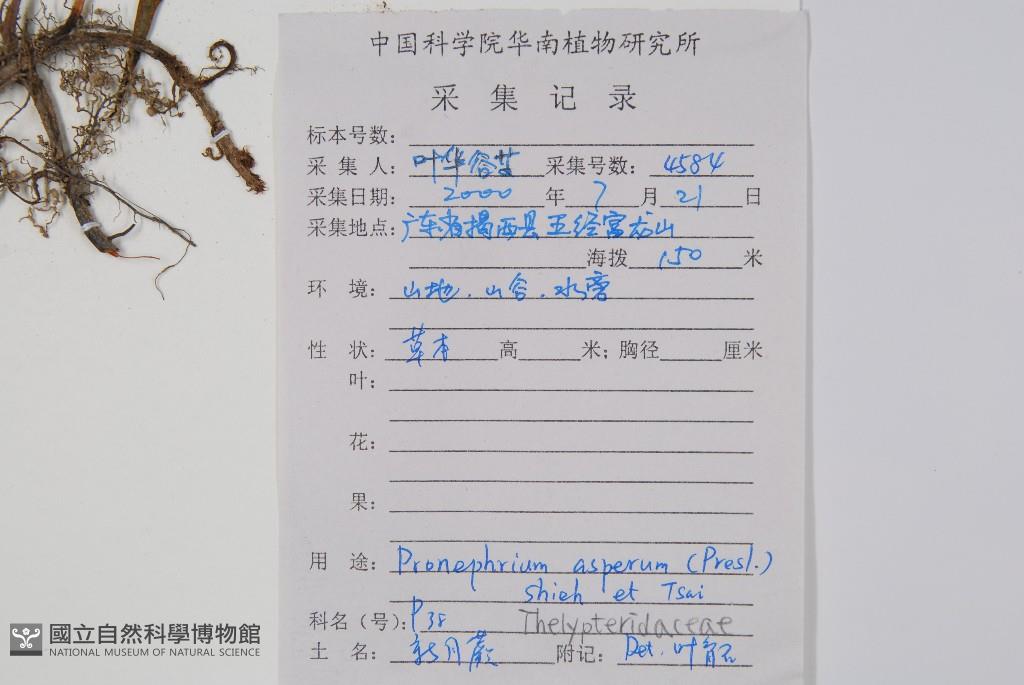 中国科学院华南植物研究所
采 集 记 录
标本号数：
采 集 人： 叶华谷 采集号数： 4584
采集日期： 2000 年 7 月 21 日
采集地点：广东省揭西县五经富龙山
海拨 150 米
环 境： 山地．山谷．水旁
性 状： 草本 高 米；胸径 厘米
叶：
花：
果：
用 途： Pronephrium asperum (Presl.)
Shieh et Tsai
科名（号）：P38 Thelypteridaceae
土 名： 新月蕨 附记： Det. 叶育石
國立自然科學博物館
NATIONAL MUSEUM OF NATURAL SCIENCE